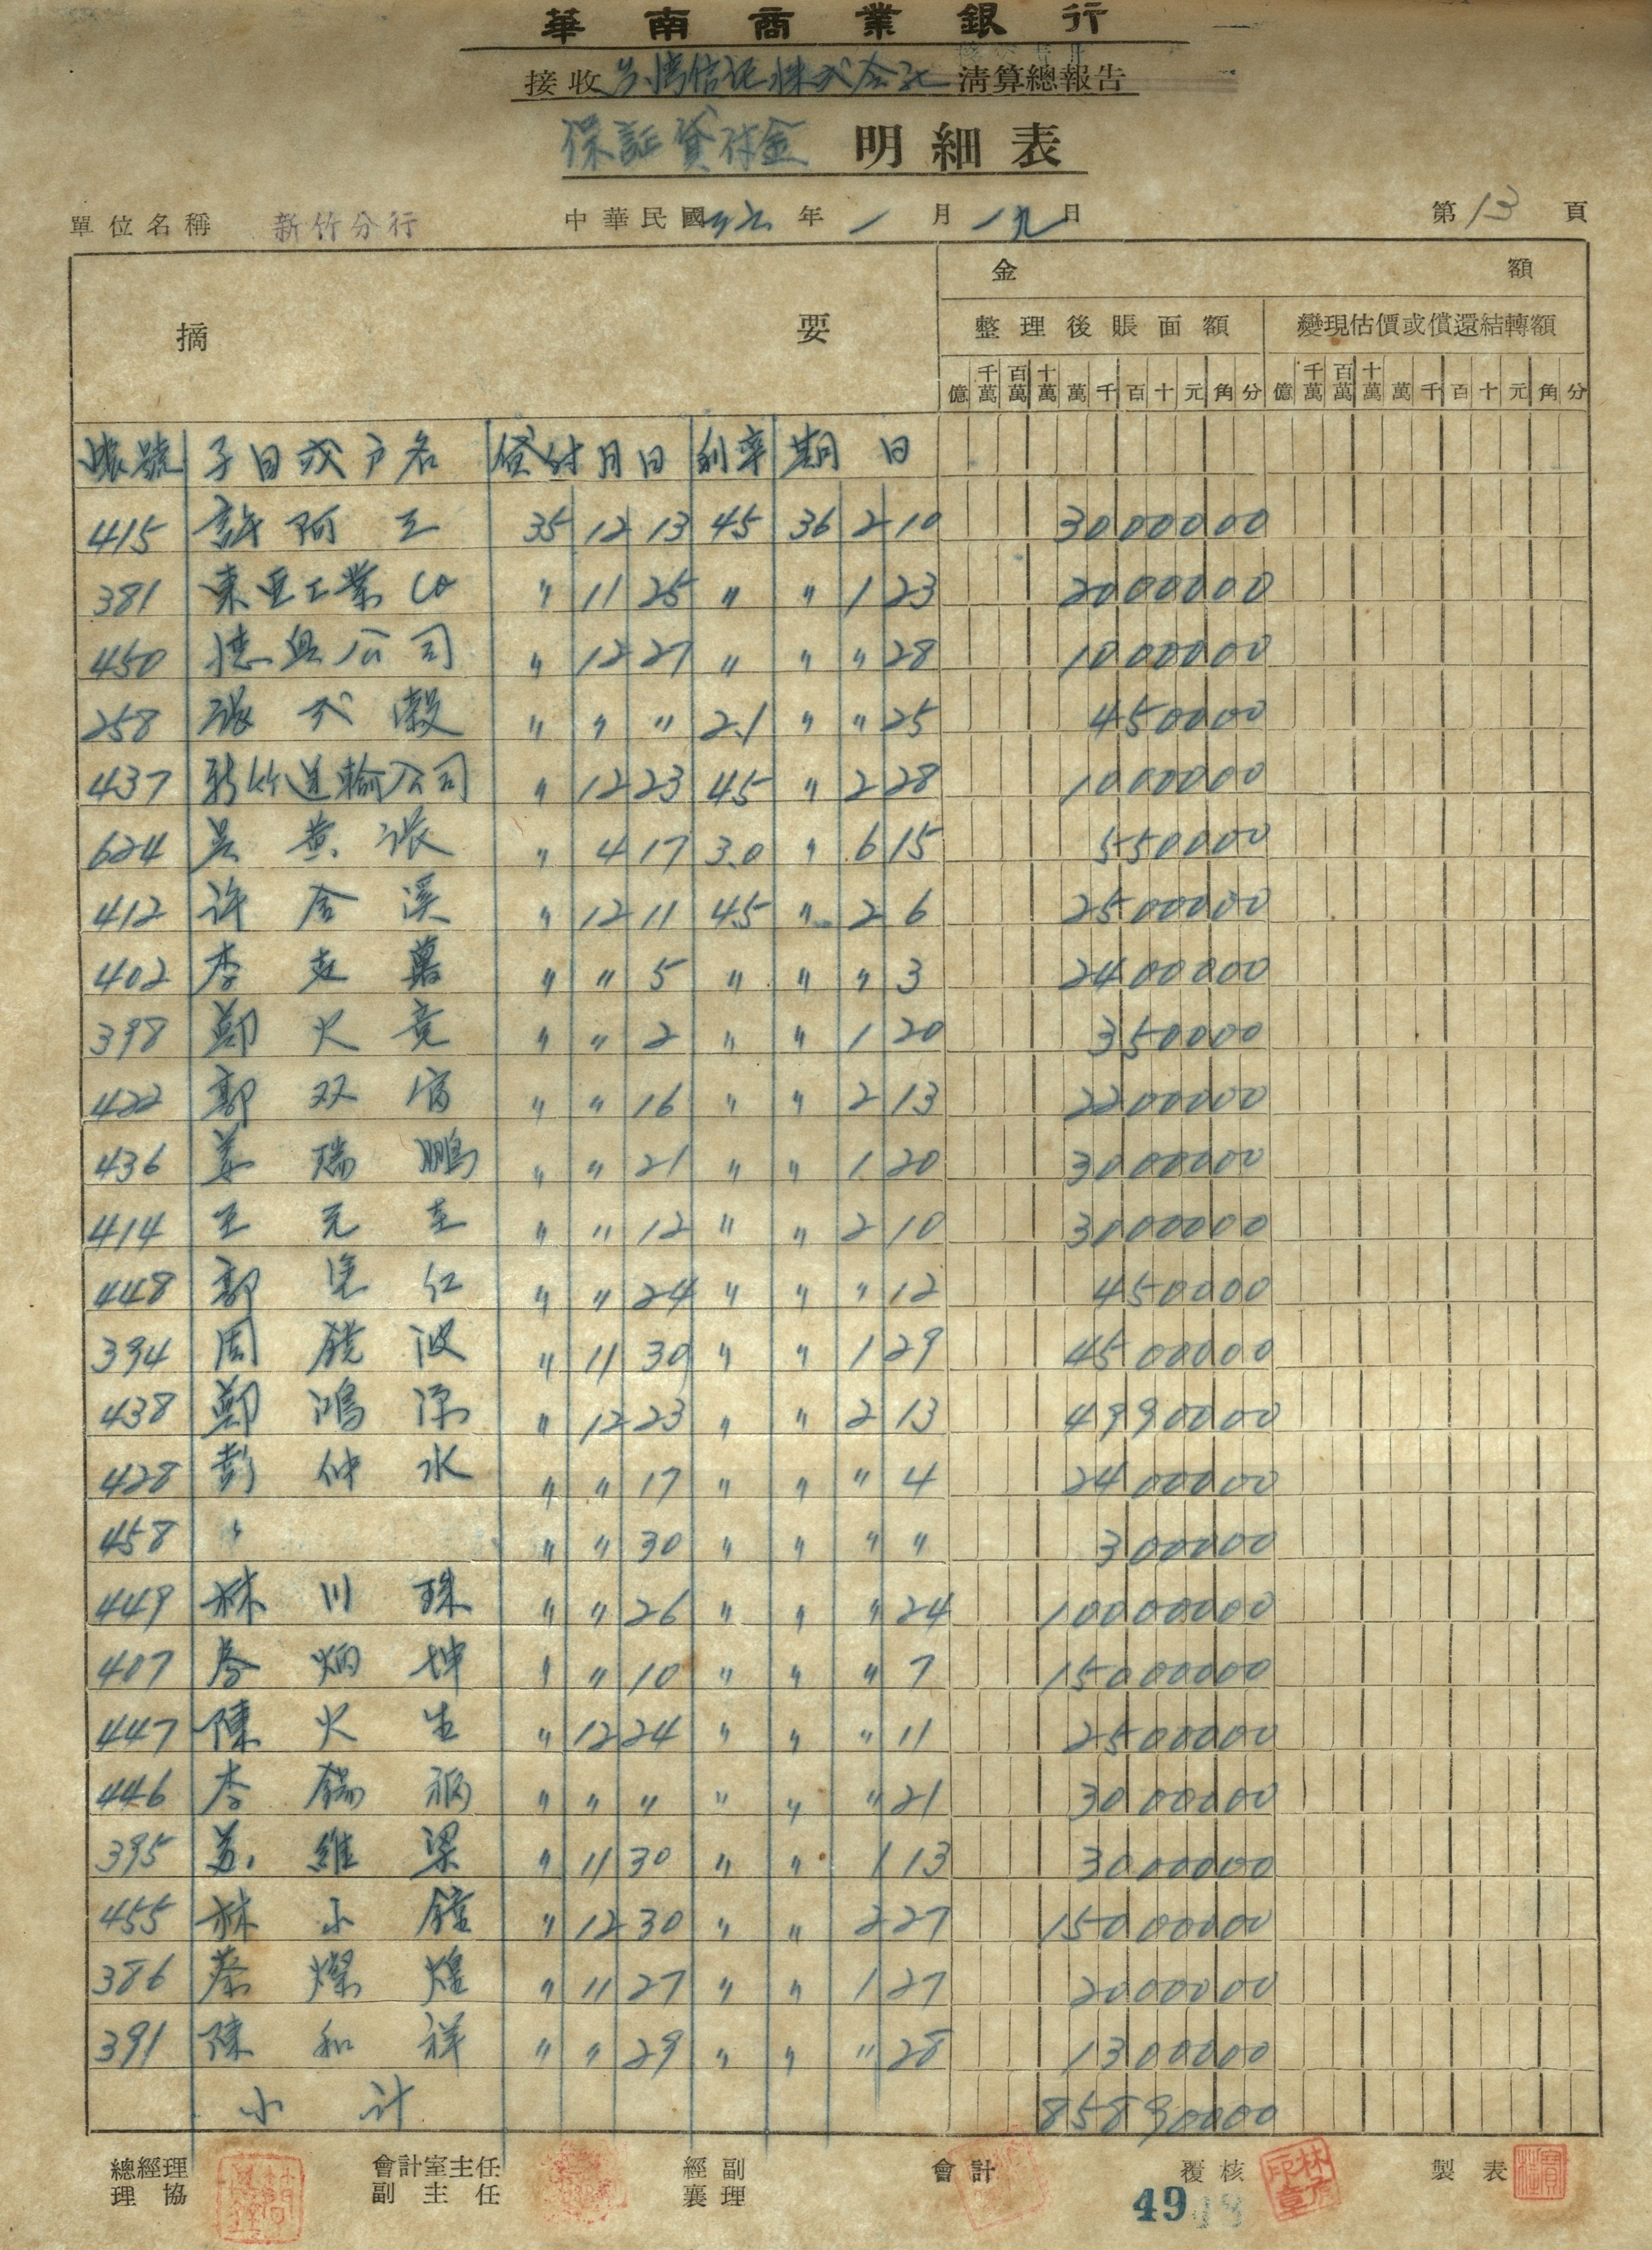 華南商業銀行
接收台湾信託株式会社清算總報告
保証貸付金 明細表
單位名稱 新竹分行 中華民國三六年一月一九日 第13頁
摘要 金額
整理後賬面額 變現估價或償還結轉額
億 千萬 百萬 十萬 萬 千 百 十 元 角 分 億 千萬 百萬 十萬 萬 千 百 十 元 角 分
帳號 子目或户名 貸付月日 利率 期日
415 許阿玉 35 12 13 45 36 2 10 3000000
381 東亜工業Co 〃 11 25 〃 〃 1 23 2000000
450 德興公司 〃 12 27 〃 〃 〃 28 1000000
258 張式穀 〃 〃 〃 2.1 〃 〃 25 450000
437 新竹運輸公司 〃 12 23 45 〃 2 28 1000000
624 吳黃張 〃 4 17 3.0 〃 6 15 550000
412 许金溪 〃 12 11 45 〃 2 6 2500000
402 李克萬 〃 〃 5 〃 〃 〃 3 2400000
398 鄭火克 〃 〃 2 〃 〃 1 20 350000
422 郭双富 〃 〃 16 〃 〃 2 13 2200000
436 姜瑞鵬 〃 〃 21 〃 〃 1 20 3000000
414 王元圭 〃 〃 12 〃 〃 2 10 3000000
448 郭仁 〃 〃 24 〃 〃 〃 12 450000
394 周鏡波 〃 11 30 〃 〃 1 29 4500000
438 鄭鴻源 〃 12 23 〃 〃 2 13 4990000
428 彭仲水 〃 〃 17 〃 〃 〃 4 2400000
458 〃 〃 〃 30 〃 〃 〃 〃 300000
449 林川珠 〃 〃 26 〃 〃 〃 24 10000000
407 炳坤 〃 〃 10 〃 〃 〃 7 15000000
447 陳火生 〃 12 24 〃 〃 〃 11 2500000
446 李錫福 〃 〃 〃 〃 〃 〃 21 3000000
395 蘇維梁 〃 11 30 〃 〃 1 13 3000000
455 林小鐘 〃 12 30 〃 〃 2 27 15000000
386 蔡燦煌 〃 11 27 〃 〃 1 27 2000000
391 陳和祥 〃 〃 29 〃 〃 〃 28 1300000
小計 85890000
總經理 會計室主任 經副 會計 覆核 製表
理協 副主任 襄理
49